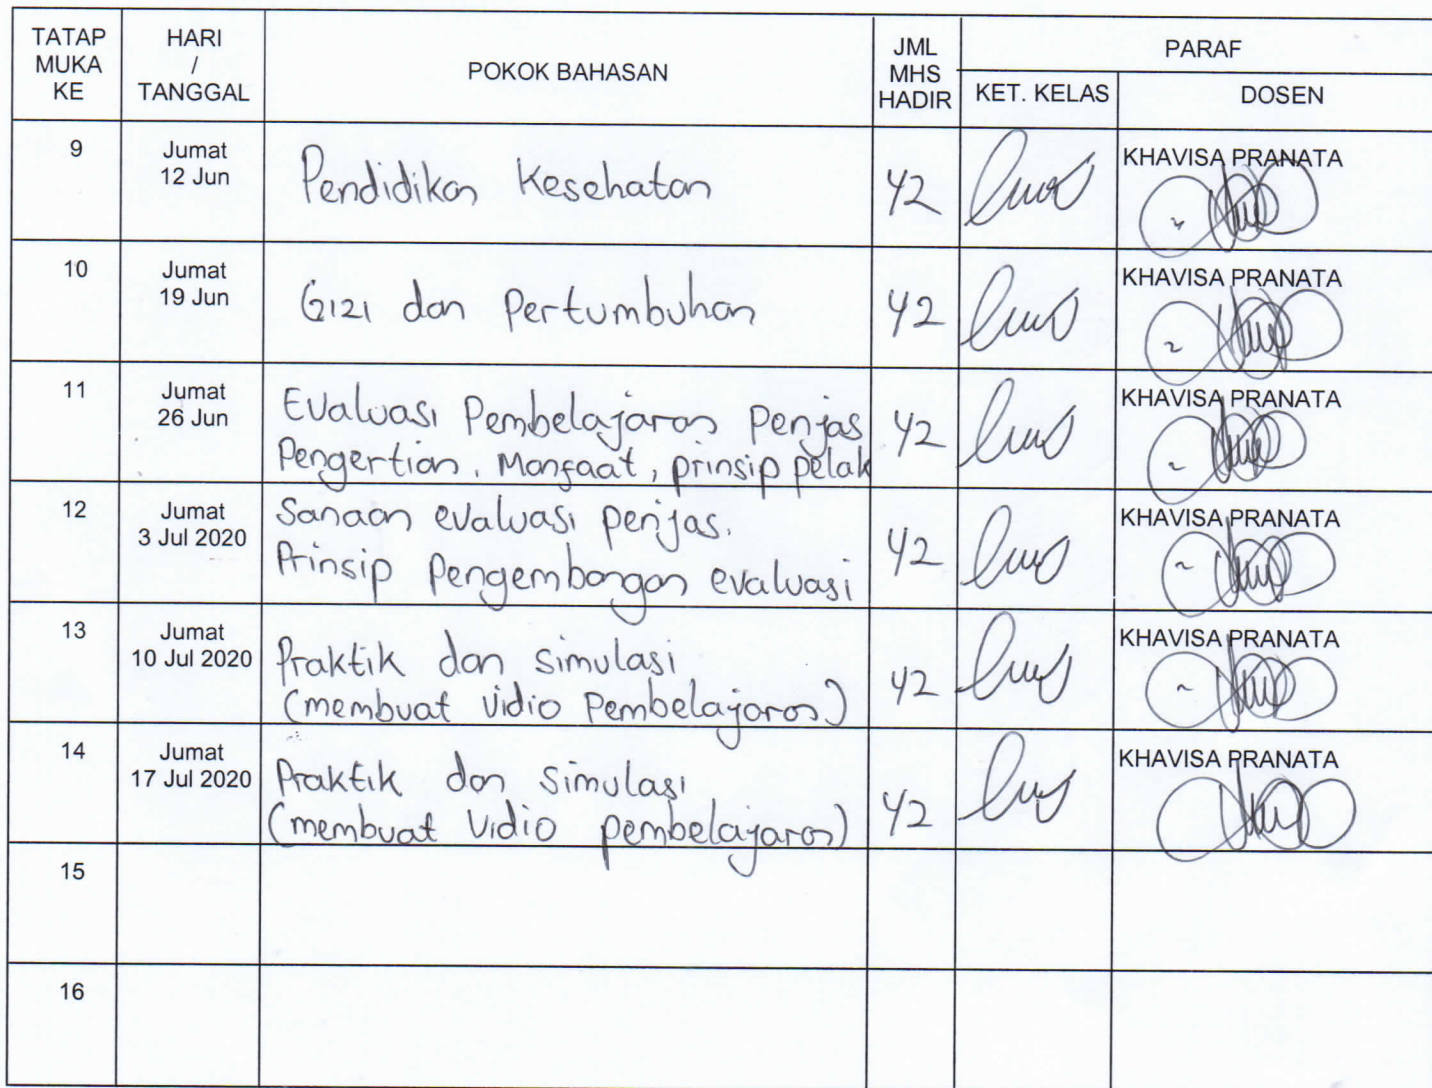 TATAP MUKA KE
HARI / TANGGAL
POKOK BAHASAN
JML MHS HADIR
PARAF
KET. KELAS
DOSEN
9
Jumat
12 Jun
Pendidikan Kesehatan
42
KHAVISA PRANATA
10
Jumat
19 Jun
Gizi dan Pertumbuhan
42
KHAVISA PRANATA
11
Jumat
26 Jun
Evaluasi Pembelajaran Penjas
Pengertian, Manfaat, prinsip pelak
42
KHAVISA PRANATA
12
Jumat
3 Jul 2020
Sanaan evaluasi penjas.
Prinsip Pengembangan evaluasi
42
KHAVISA PRANATA
13
Jumat
10 Jul 2020
Praktik dan simulasi
(membuat vidio Pembelajaran)
42
KHAVISA PRANATA
14
Jumat
17 Jul 2020
Praktik dan simulasi
(membuat vidio pembelajaran)
42
KHAVISA PRANATA
15
16